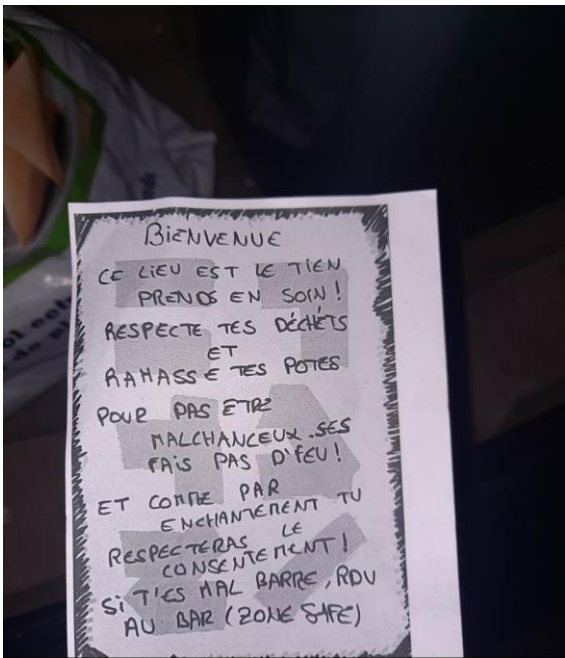 BIENVENUE
CE LIEU EST LE TIEN
PRENDS EN SOIN !
RESPECTE TES DÉCHÉTS
ET
RAMASSE TES POTES
POUR PAS ETRE
MALCHANCEUX.SES
FAIS PAS D'FEU !
ET COMME PAR
ENCHANTEMENT TU
RESPECTERAS LE
CONSENTEMENT !
SI T'ES MAL BARRE, RDV
AU BAR (ZONE SAFE)